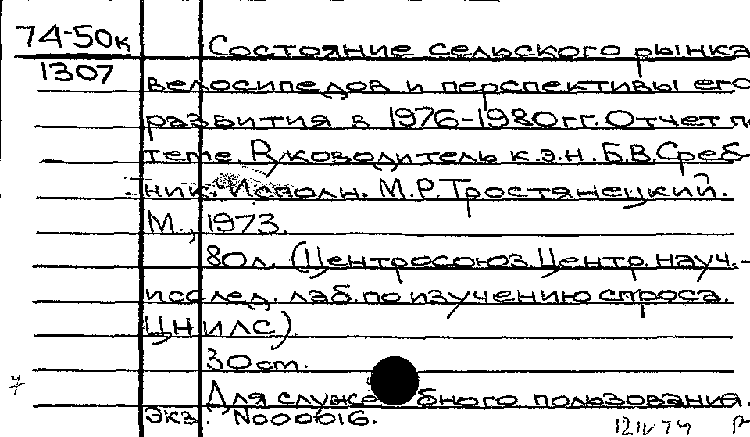 74-50к
1307
Состояние сельского рынка
велосипедов и перспективы его
развития в 1976-1980гг. Отчет по
теме. Руководитель к.э.н. Б.В.Среб-
ник. Исполн. М.Р.Тростянецкий.
М., 1973.
80л. (Центросоюз. Центр. науч.-
исслед. лаб. по изучению спроса.
ЦНИЛС).
30см.
Для служебного пользования.
Экз. №000016.
12 IV 74